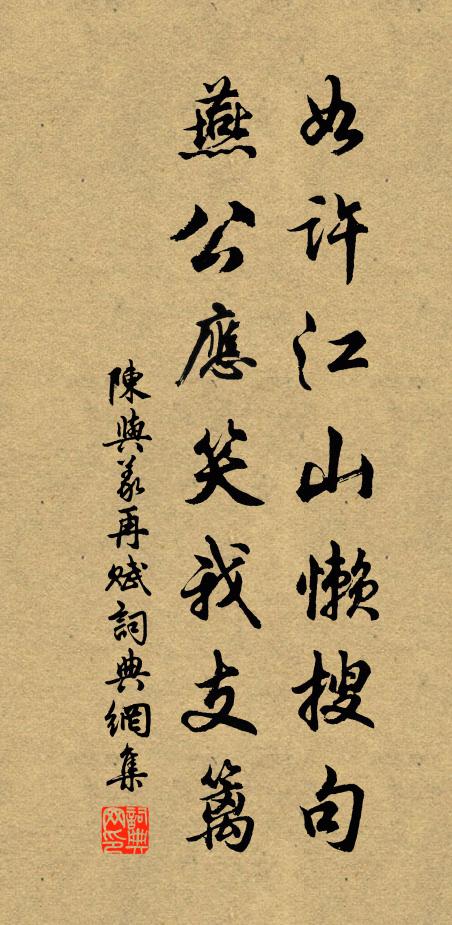 如許江山懶搜句
燕公應笑我支籬
陳與義再賦詞典網集
詞典網印